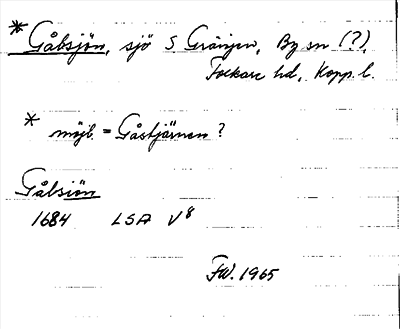 * Gåbsjön, sjö S Grängen, By sn (?),
Folkare hd, Kopp. l.
* möjl. = Gåstjärnen ?
Gåbsiön
1684 LSA V8
FW. 1965